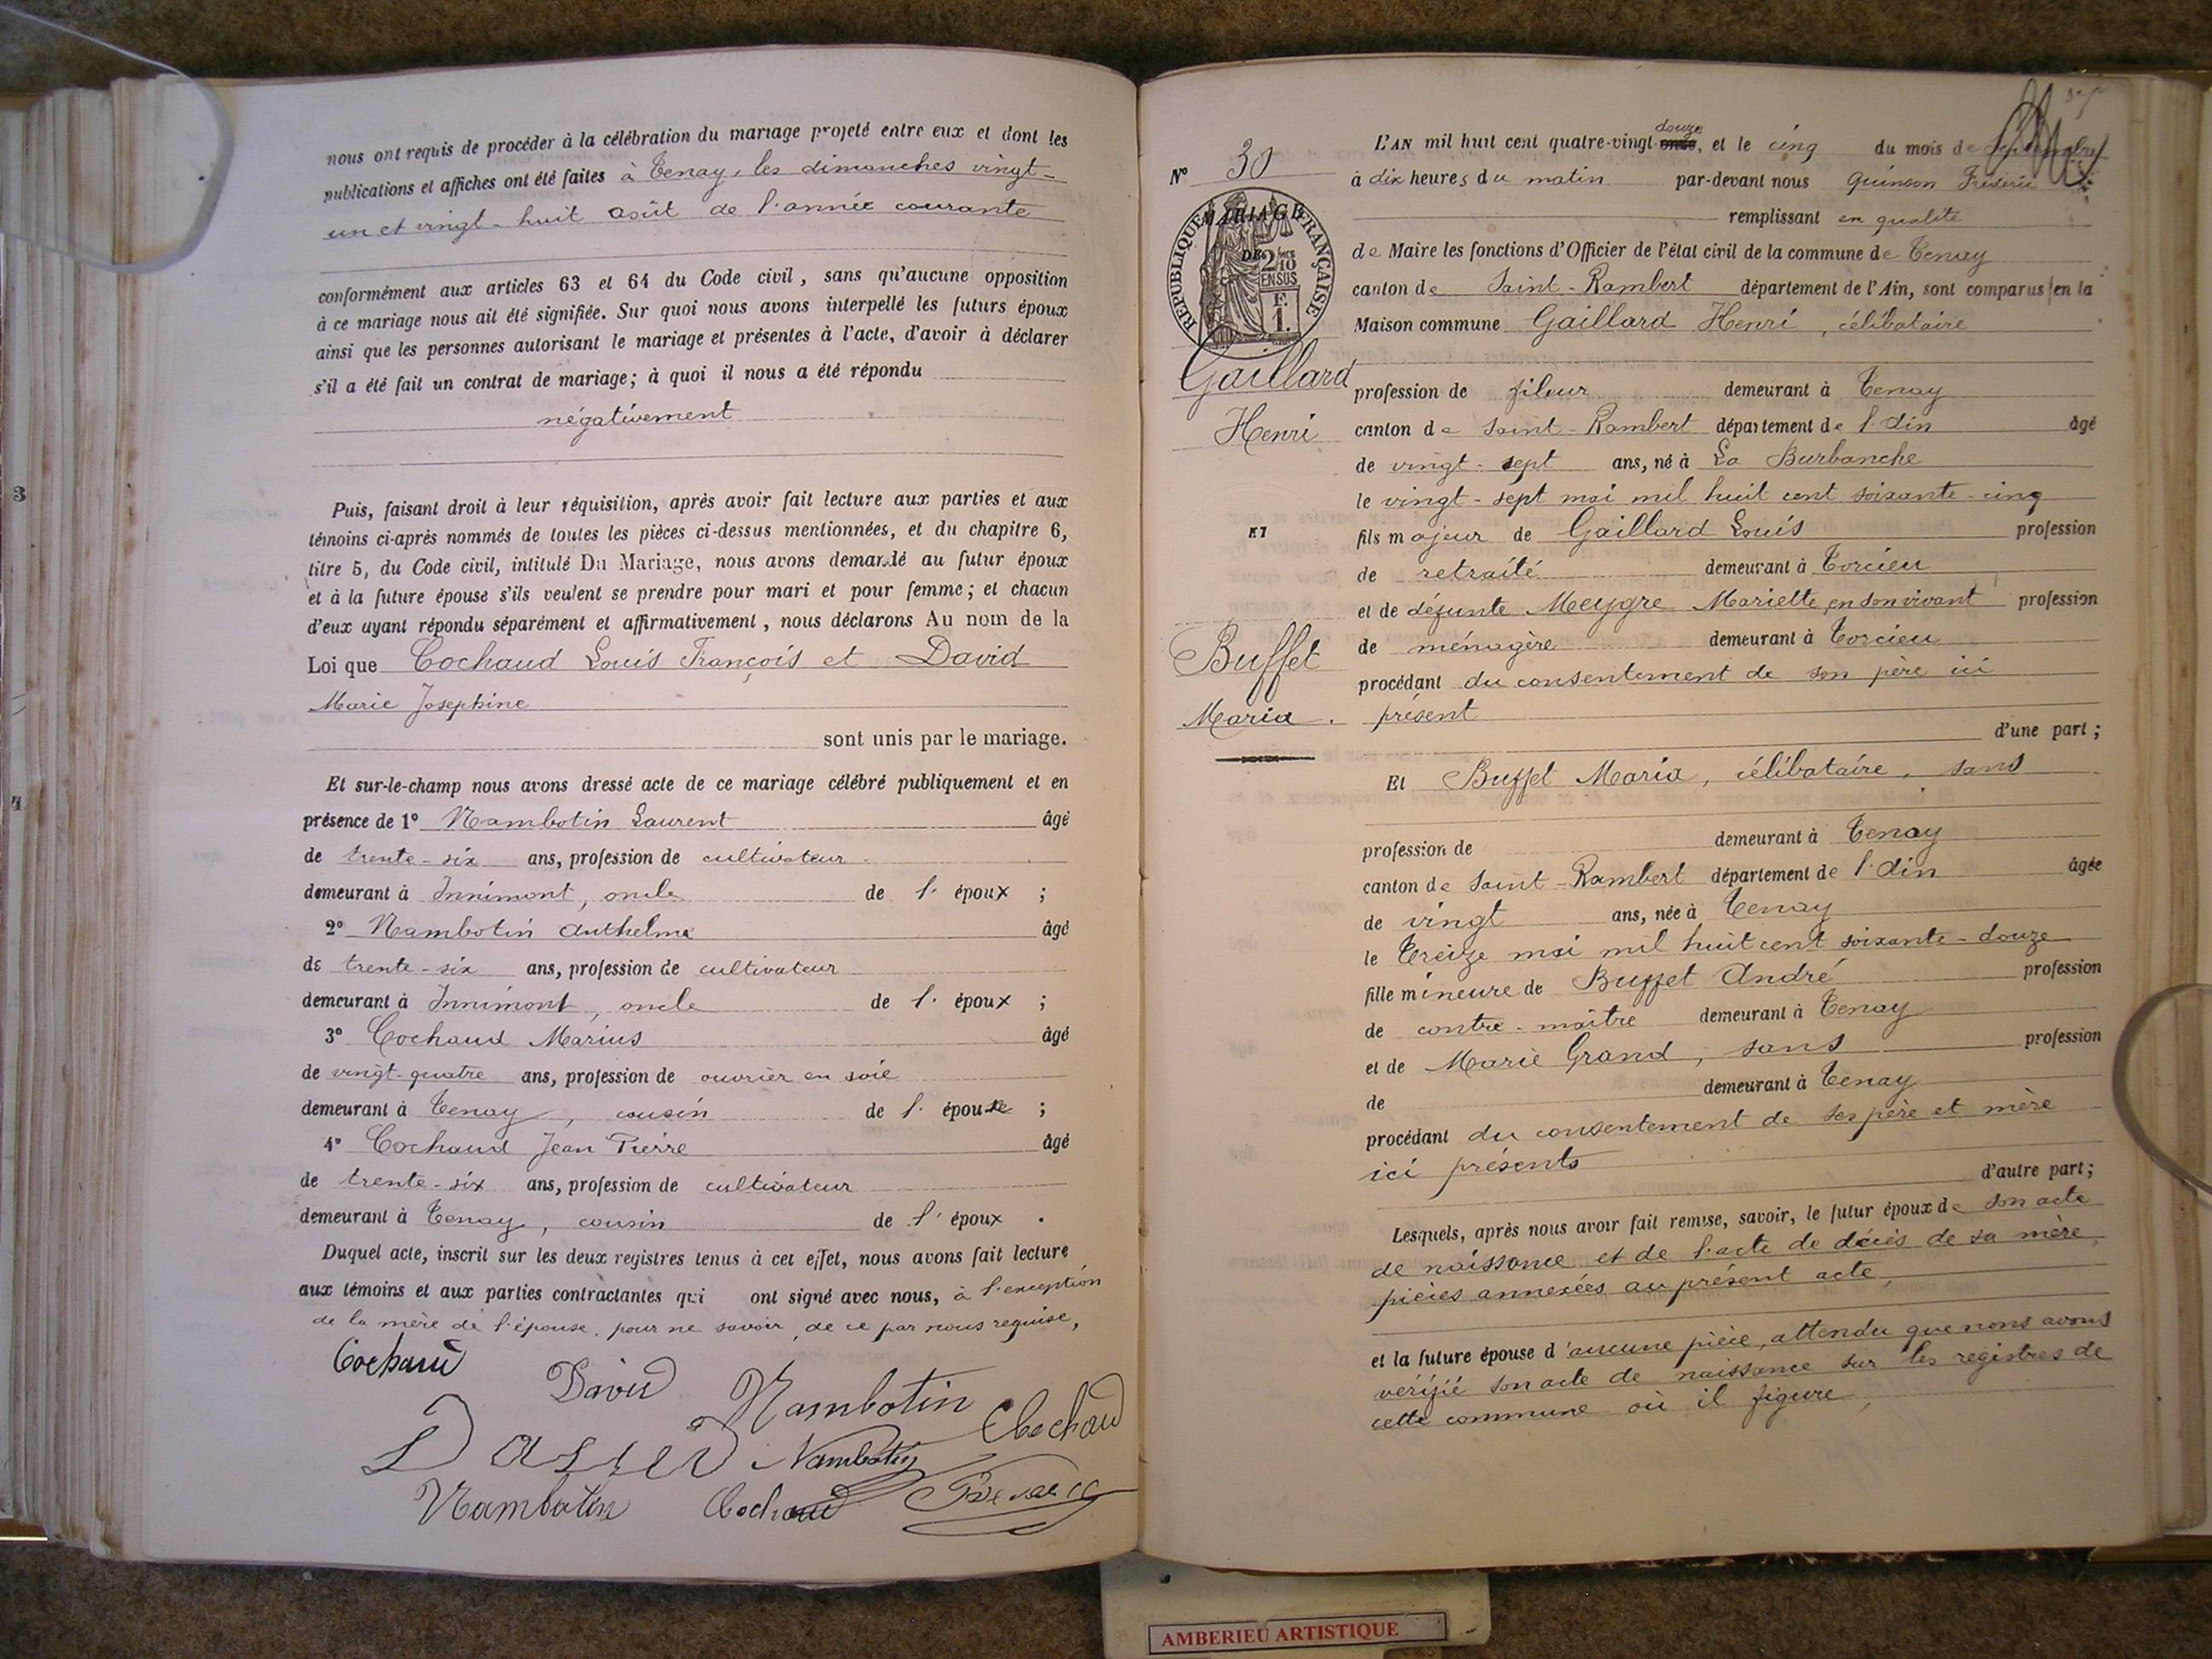 nous ont requis de procéder à la célébration du mariage projeté entre eux et dont les
publications et affiches ont été faites à Tenay, les dimanches vingt-
un et vingt-huit août de l'année courante
conformément aux articles 63 et 64 du Code civil, sans qu'aucune opposition
à ce mariage nous ait été signifiée. Sur quoi nous avons interpellé les futurs époux
ainsi que les personnes autorisant le mariage et présentes à l'acte, d'avoir à déclarer
s'il a été fait un contrat de mariage; à quoi il nous a été répondu
négativement
Puis, faisant droit à leur réquisition, après avoir fait lecture aux parties et aux
témoins ci-après nommés de toutes les pièces ci-dessus mentionnées, et du chapitre 6,
titre 5, du Code civil, intitulé Du Mariage, nous avons demandé au futur époux
et à la future épouse s'ils veulent se prendre pour mari et pour femme; et chacun
d'eux ayant répondu séparément et affirmativement, nous déclarons Au nom de la
Loi que Cochaud Louis François et David
Marie Josephine
sont unis par le mariage.
Et sur-le-champ nous avons dressé acte de ce mariage célébré publiquement et en
présence de 1° Nambotin Laurent âgé
de trente-six ans, profession de cultivateur
demeurant à Innimont, oncle de l' époux ;
2° Nambotin Anthelme âgé
de trente-six ans, profession de cultivateur
demeurant à Innimont, oncle de l' époux ;
3° Cochaud Marius âgé
de vingt-quatre ans, profession de ouvrier en soie
demeurant à Tenay, cousin de l' épouse ;
4° Cochaud Jean Pierre âgé
de trente-six ans, profession de cultivateur
demeurant à Tenay, cousin de l' époux .
Duquel acte, inscrit sur les deux registres tenus à cet effet, nous avons fait lecture
aux témoins et aux parties contractantes qui ont signé avec nous, à l'exception
de la mère de l'épouse, pour ne savoir, de ce par nous requise,
Cochaud
David Nambotin Cochaud
Nambotin
Nambotin Cochaud
3
4
N° 30
MARIAGE
RÉPUBLIQUE FRANÇAISE
DE 2/10
EN SUS
F.
1.
Gaillard
Henri
ET
Buffet
Maria.
L'AN mil huit cent quatre-vingt-onze, et le cinq du mois de septembre
douze
à dix heures du matin par-devant nous Quinson Fréderic
remplissant en qualité
de Maire les fonctions d'Officier de l'état civil de la commune de Tenay
canton de Saint-Rambert département de l'Ain, sont comparus en la
Maison commune Gaillard Henri, célibataire
profession de fileur demeurant à Tenay
canton de Saint-Rambert département de l'Ain âgé
de vingt-sept ans, né à La Burbanche
le vingt-sept mai mil huit cent soixante-cinq
fils majeur de Gaillard Louis profession
de retraité demeurant à Torcieu
et de défunte Meygre Mariette, en son vivant profession
de ménagère demeurant à Torcieu
procédant du consentement de son père ici
présent
d'une part;
Et Buffet Maria, célibataire, sans
profession de demeurant à Tenay
canton de Saint-Rambert département de l'Ain âgée
de vingt ans, née à Tenay
le treize mai mil huit cent soixante-douze
fille mineure de Buffet André profession
de contre-maître demeurant à Tenay
et de Marie Grand, sans profession
de demeurant à Tenay
procédant du consentement de ses père et mère
ici présents
d'autre part;
Lesquels, après nous avoir fait remise, savoir, le futur époux de son acte
de naissance et de l'acte de décès de sa mère,
pièces annexées au présent acte,
et la future épouse d'aucune pièce, attendu que nous avons
vérifié son acte de naissance sur les registres de
cette commune où il figure,
AMBERIEU ARTISTIQUE